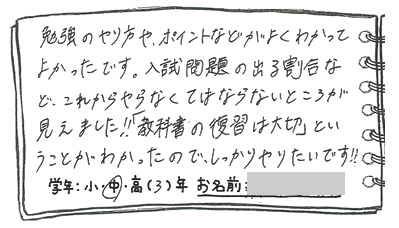 勉強のやり方や、ポイントなどがよくわかって
よかったです。入試問題の出る割合な
ど、これからやらなくてはならないところが
見えました!!「教科書の復習は大切」とい
うことがわかったので、しっかりやりたいです!!
学年:小・中・高(3)年 お名前: